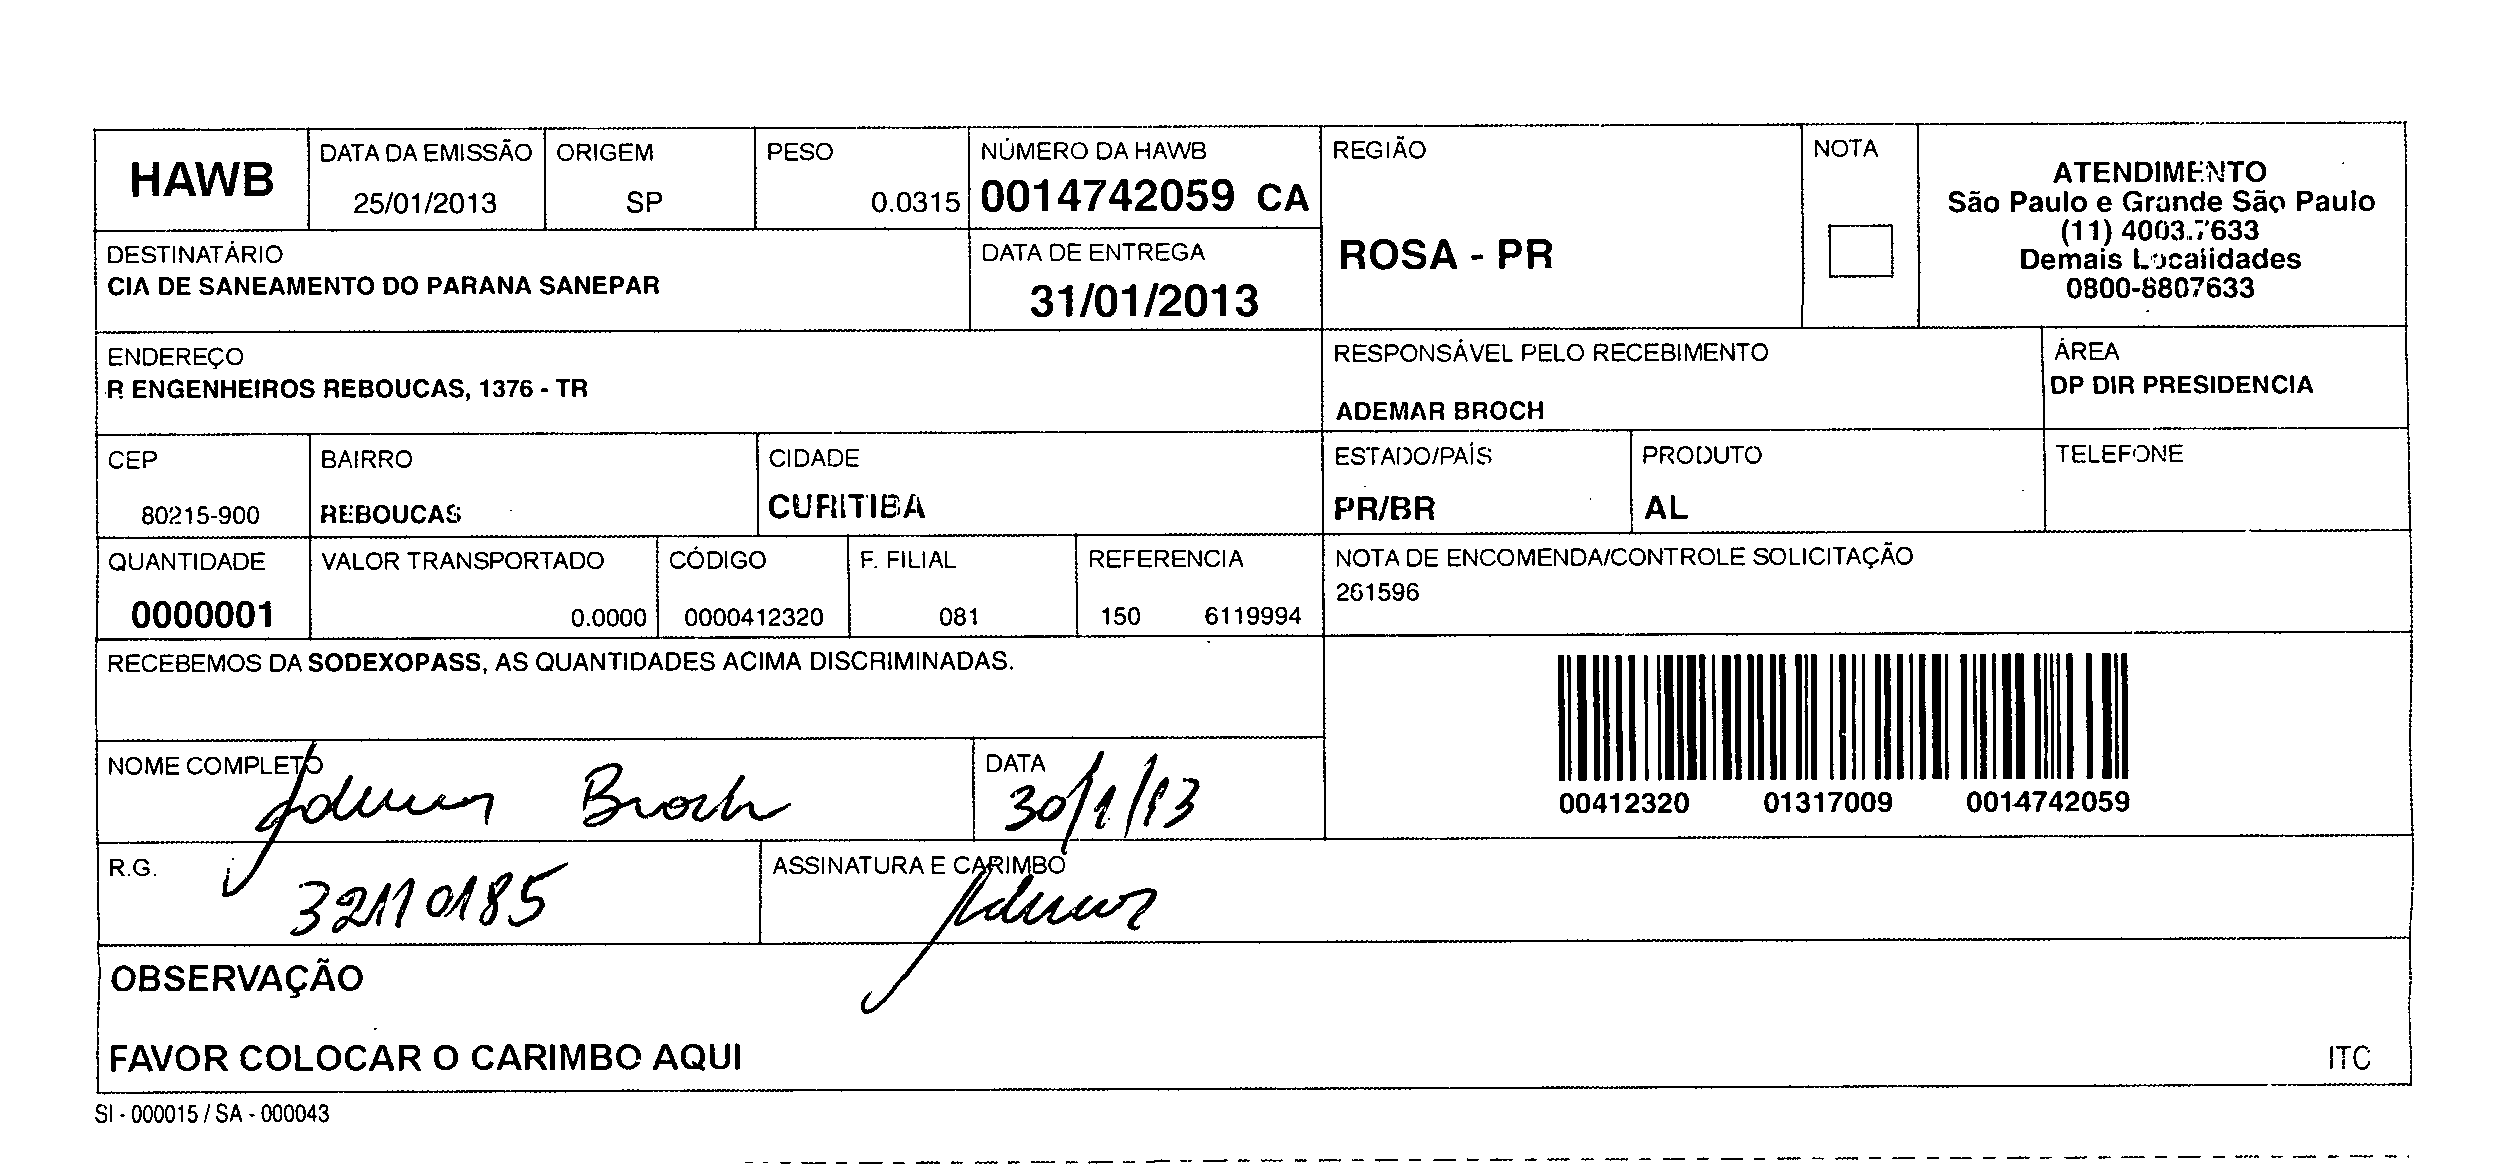 HAWB
DATA DA EMISSÃO
25/01/2013
ORIGEM
SP
PESO
0.0315
NÚMERO DA HAWB
0014742059 CA
REGIÃO
ROSA - PR
NOTA
ATENDIMENTO
São Paulo e Grande São Paulo
(11) 4003.7633
Demais Localidades
0800-8807633
DESTINATÁRIO
CIA DE SANEAMENTO DO PARANA SANEPAR
DATA DE ENTREGA
31/01/2013
ENDEREÇO
R ENGENHEIROS REBOUCAS, 1376 - TR
RESPONSÁVEL PELO RECEBIMENTO
ADEMAR BROCH
ÁREA
DP DIR PRESIDENCIA
CEP
80215-900
BAIRRO
REBOUCAS
CIDADE
CURITIBA
ESTADO/PAÍS
PR/BR
PRODUTO
AL
TELEFONE
QUANTIDADE
0000001
VALOR TRANSPORTADO
0.0000
CÓDIGO
0000412320
F. FILIAL
081
REFERENCIA
150 6119994
NOTA DE ENCOMENDA/CONTROLE SOLICITAÇÃO
261596
RECEBEMOS DA SODEXOPASS, AS QUANTIDADES ACIMA DISCRIMINADAS.
00412320 01317009 0014742059
NOME COMPLETO
Ademar Broch
DATA
30/1/13
R.G.
32110185
ASSINATURA E CARIMBO
Ademar
OBSERVAÇÃO
FAVOR COLOCAR O CARIMBO AQUI
ITC
SI - 000015 / SA - 000043